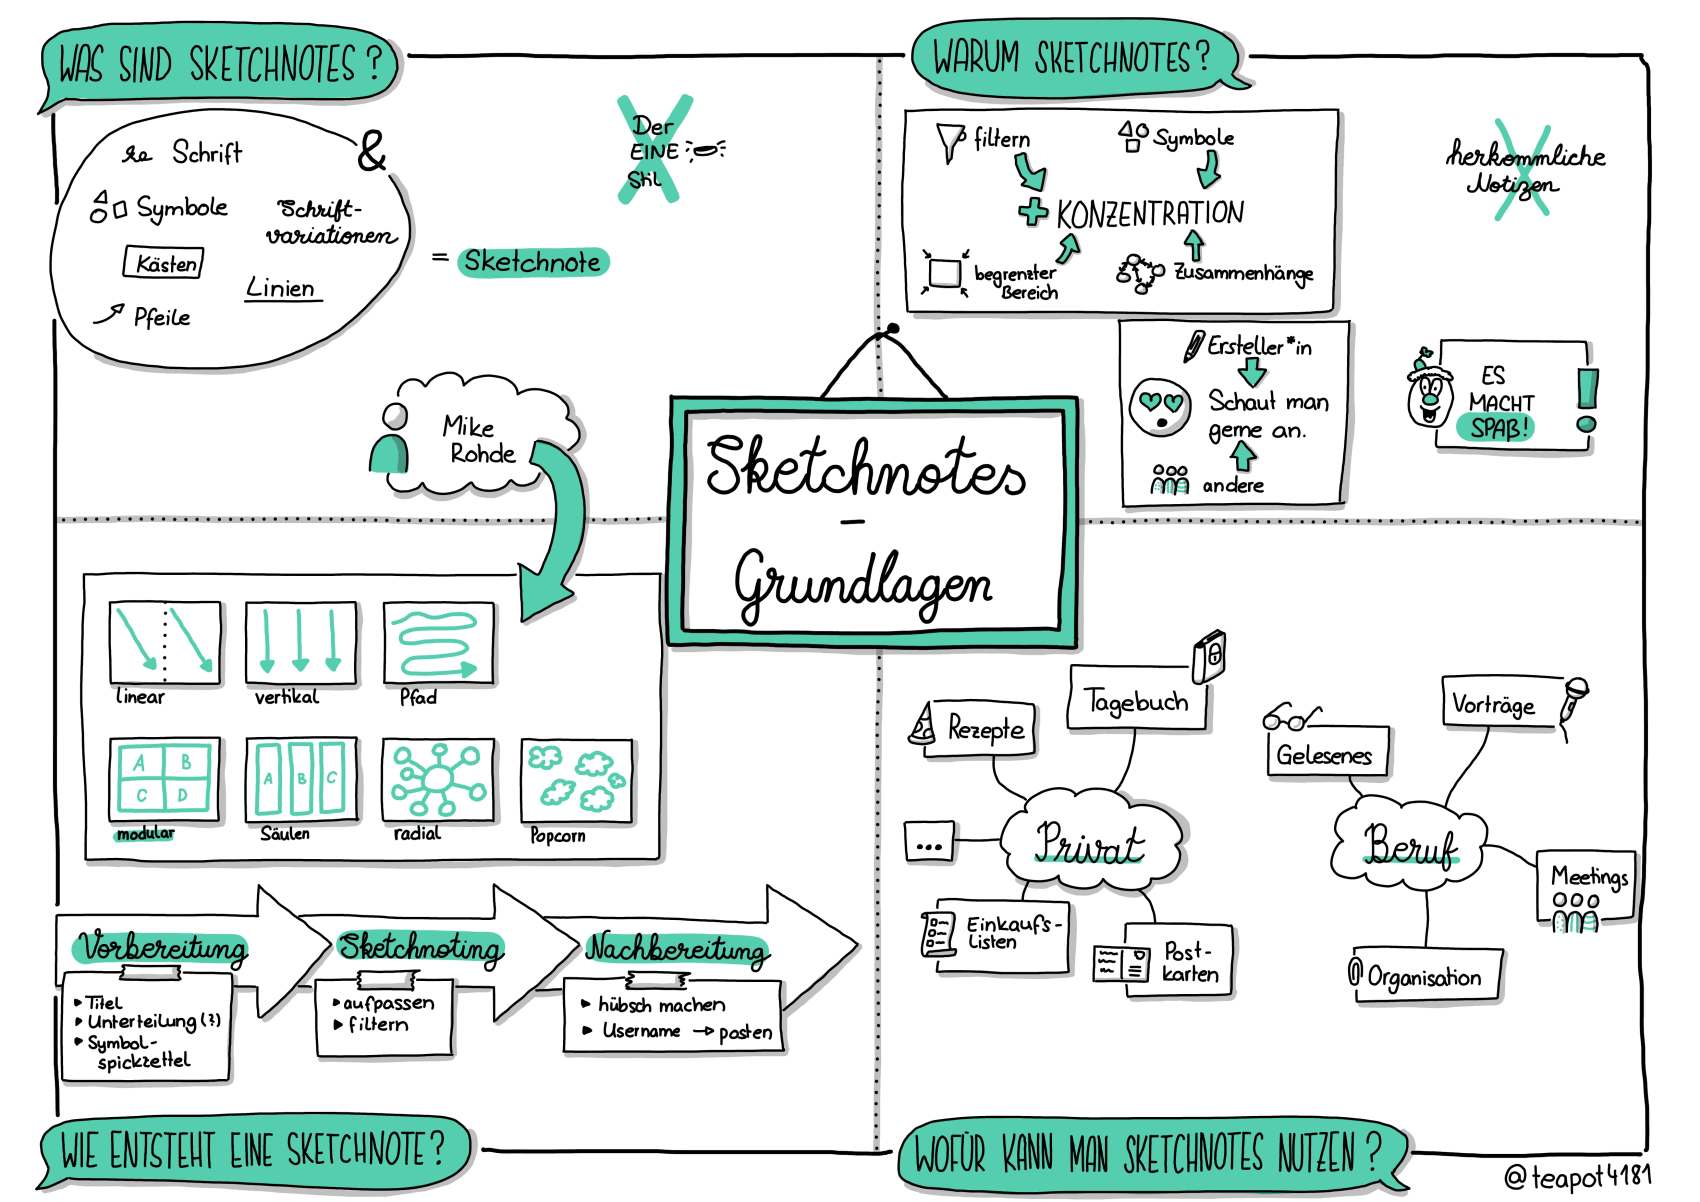 WAS SIND SKETCHNOTES?
Schrift
&
Symbole
Schrift-
variationen
Kästen
Linien
Pfeile
= Sketchnote
Der
EINE
Stil
Mike
Rohde
WARUM SKETCHNOTES?
filtern
Symbole
+ KONZENTRATION
begrenzter
Bereich
Zusammenhänge
herkömmliche
Notizen
Ersteller*in
Schaut man
gerne an.
andere
ES
MACHT
SPAß!
!
Sketchnotes
-
Grundlagen
linear
vertikal
Pfad
A B
C D
modular
A B C
Säulen
radial
Popcorn
Vorbereitung
Titel
Unterteilung (?)
Symbol-
spickzettel
Sketchnoting
aufpassen
filtern
Nachbereitung
hübsch machen
Username → posten
WIE ENTSTEHT EINE SKETCHNOTE?
Rezepte
Tagebuch
...
Privat
Einkaufs-
Listen
Post-
karten
Gelesenes
Vorträge
Beruf
Meetings
Organisation
WOFÜR KANN MAN SKETCHNOTES NUTZEN?
@teapot4181